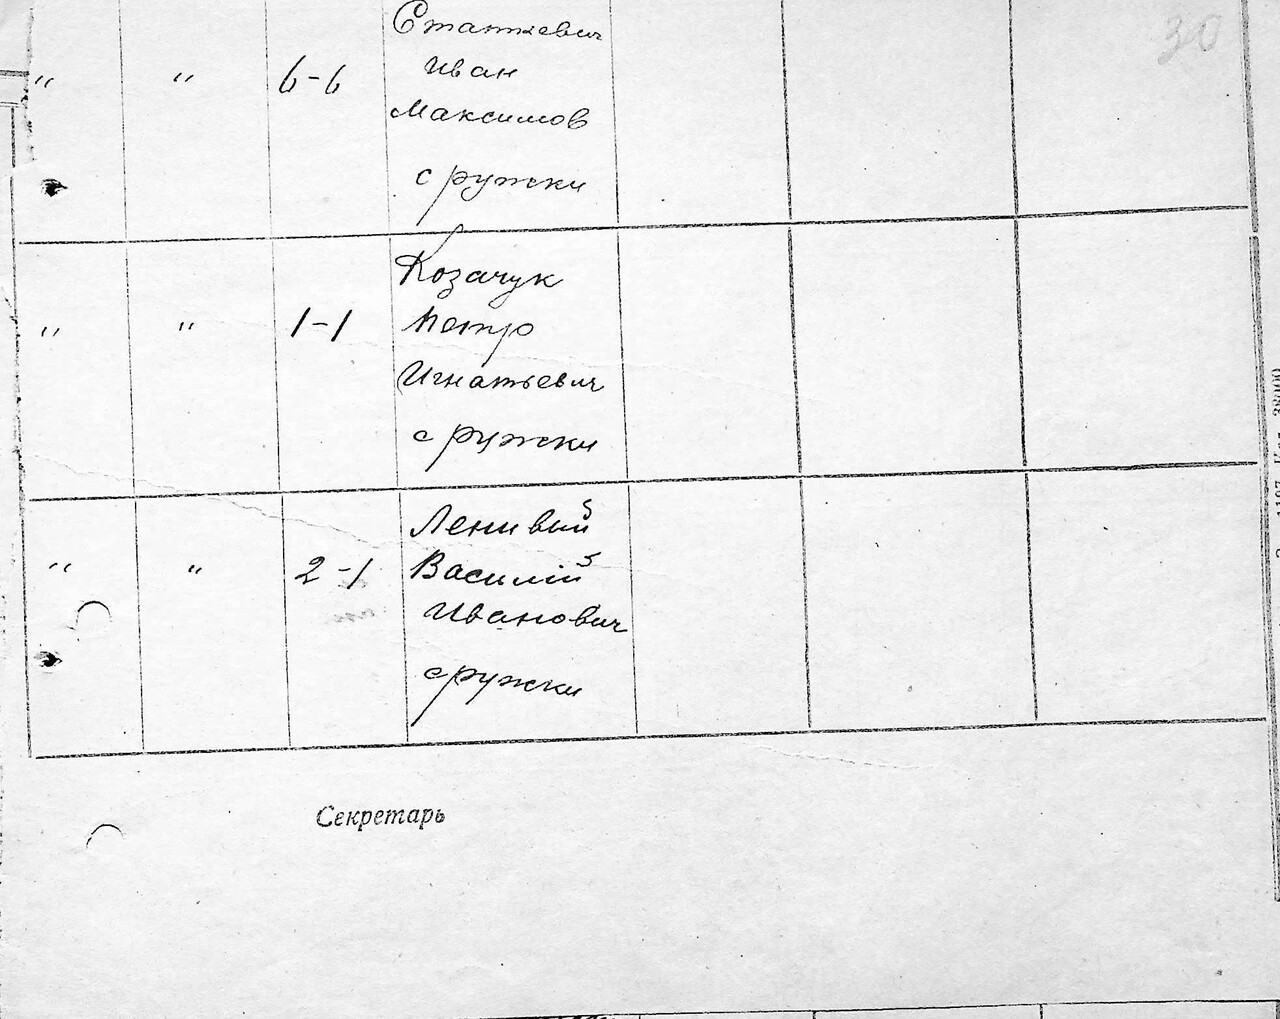 30
Статкевич
" " 6-6 Иван
Максимов
с ружки
Козачук
" " 1-1 Петро
Игнатьевич
с ружки
Ленивый
" " 2-1 Василій
Иванович
с ружки
Секретарь